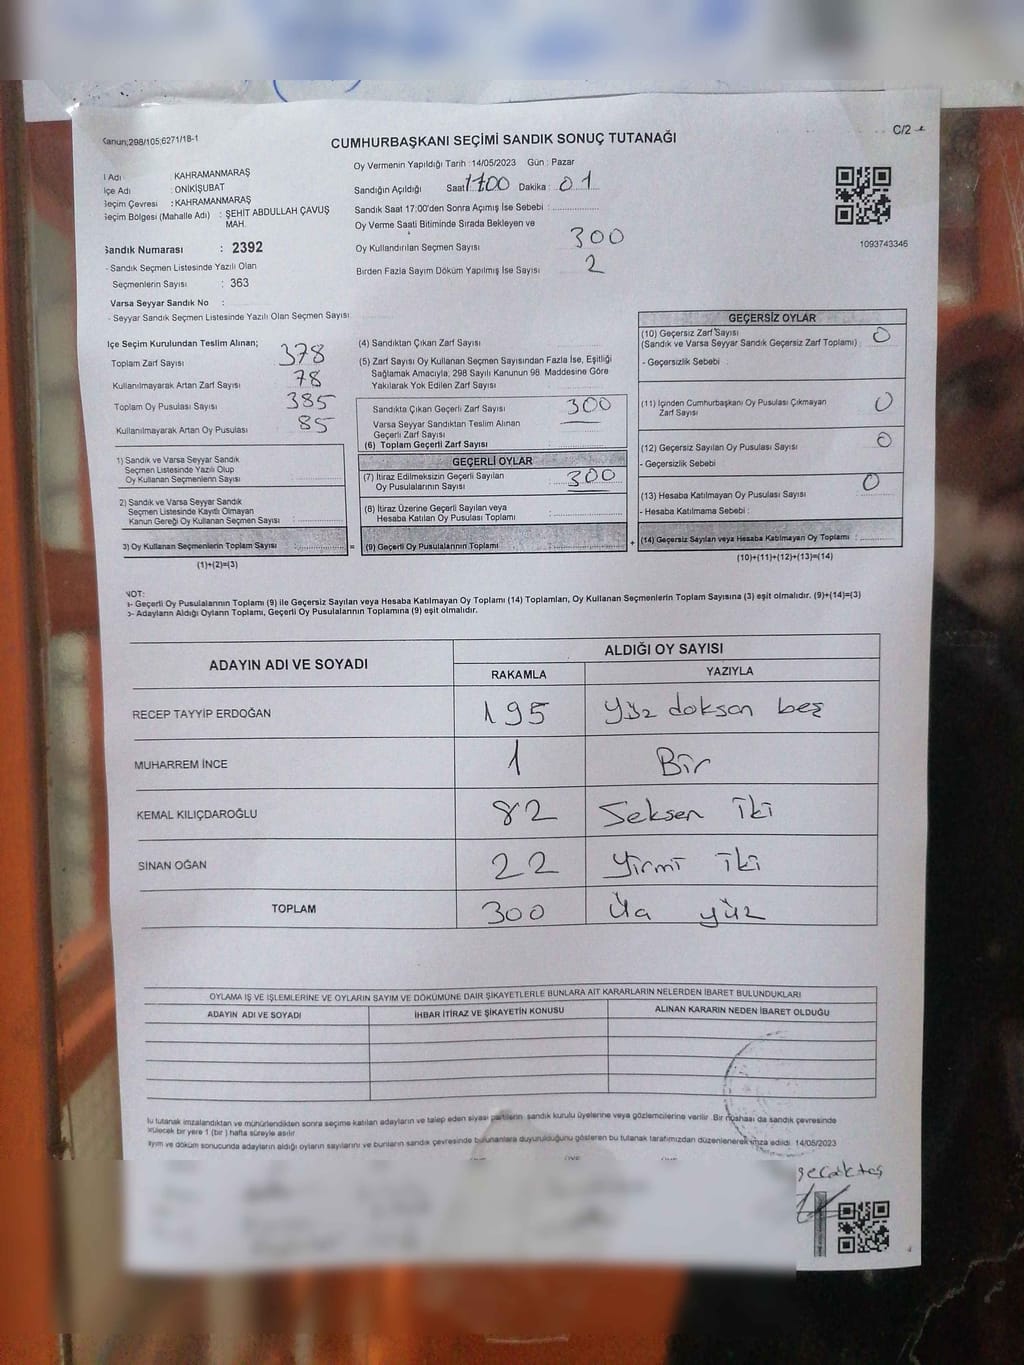 Kanun;298/105;6271/18-1
C/2
CUMHURBAŞKANI SEÇİMİ SANDIK SONUÇ TUTANAĞI
Oy Vermenin Yapıldığı Tarih :14/05/2023 Gün : Pazar
Sandığın Açıldığı Saat 1700 Dakika : 01
Sandık Saat 17:00'den Sonra Açımış İse Sebebi :
Oy Verme Saati Bitiminde Sırada Bekleyen ve
Oy Kullandırılan Seçmen Sayısı 300
Birden Fazla Sayım Döküm Yapılmış İse Sayısı 2
İl Adı : KAHRAMANMARAŞ
İlçe Adı : ONİKİŞUBAT
Seçim Çevresi : KAHRAMANMARAŞ
Seçim Bölgesi (Mahalle Adı) : ŞEHİT ABDULLAH ÇAVUŞ
MAH.
Sandık Numarası : 2392
- Sandık Seçmen Listesinde Yazılı Olan
Seçmenlerin Sayısı : 363
Varsa Seyyar Sandık No :
- Seyyar Sandık Seçmen Listesinde Yazılı Olan Seçmen Sayısı
1093743346
İlçe Seçim Kurulundan Teslim Alınan;
Toplam Zarf Sayısı 378
Kullanılmayarak Artan Zarf Sayısı 78
Toplam Oy Pusulası Sayısı 385
Kullanılmayarak Artan Oy Pusulası 85
1) Sandık ve Varsa Seyyar Sandık
Seçmen Listesinde Yazılı Olup
Oy Kullanan Seçmenlerin Sayısı :
2) Sandık ve Varsa Seyyar Sandık
Seçmen Listesinde Kayıtlı Olmayan
Kanun Gereği Oy Kullanan Seçmen Sayısı :
3) Oy Kullanan Seçmenlerin Toplam Sayısı :
(1)+(2)=(3)
(4) Sandıktan Çıkan Zarf Sayısı :
(5) Zarf Sayısı Oy Kullanan Seçmen Sayısından Fazla İse, Eşitliği
Sağlamak Amacıyla, 298 Sayılı Kanunun 98. Maddesine Göre
Yakılarak Yok Edilen Zarf Sayısı :
Sandıkta Çıkan Geçerli Zarf Sayısı 300
Varsa Seyyar Sandıktan Teslim Alınan
Geçerli Zarf Sayısı
(6) Toplam Geçerli Zarf Sayısı
GEÇERLİ OYLAR
(7) İtiraz Edilmeksizin Geçerli Sayılan
Oy Pusulalarının Sayısı : 300
(8) İtiraz Üzerine Geçerli Sayılan veya
Hesaba Katılan Oy Pusulası Toplamı
= (9) Geçerli Oy Pusulalarının Toplamı
GEÇERSİZ OYLAR
(10) Geçersiz Zarf Sayısı
(Sandık ve Varsa Seyyar Sandık Geçersiz Zarf Toplamı) : 0
- Geçersizlik Sebebi :
(11) İçinden Cumhurbaşkanı Oy Pusulası Çıkmayan
Zarf Sayısı 0
(12) Geçersiz Sayılan Oy Pusulası Sayısı 0
- Geçersizlik Sebebi
(13) Hesaba Katılmayan Oy Pusulası Sayısı : 0
- Hesaba Katılmama Sebebi :
+ (14) Geçersiz Sayılan veya Hesaba Katılmayan Oy Toplamı :
(10)+(11)+(12)+(13)=(14)
NOT:
Geçerli Oy Pusulalarının Toplamı (9) ile Geçersiz Sayılan veya Hesaba Katılmayan Oy Toplamı (14) Toplamları, Oy Kullanan Seçmenlerin Toplam Sayısına (3) eşit olmalıdır. (9)+(14)=(3)
Adayların Aldığı Oyların Toplamı, Geçerli Oy Pusulalarının Toplamına (9) eşit olmalıdır.
ADAYIN ADI VE SOYADI ALDIĞI OY SAYISI
RAKAMLA YAZIYLA
RECEP TAYYİP ERDOĞAN 195 Yüz doksan beş
MUHARREM İNCE 1 Bir
KEMAL KILIÇDAROĞLU 82 Seksen iki
SİNAN OĞAN 22 Yirmi iki
TOPLAM 300 Üç yüz
OYLAMA İŞ VE İŞLEMLERİNE VE OYLARIN SAYIM VE DÖKÜMÜNE DAİR ŞİKAYETLERLE BUNLARA AİT KARARLARIN NELERDEN İBARET BULUNDUKLARI
ADAYIN ADI VE SOYADI İHBAR İTİRAZ VE ŞİKAYETİN KONUSU ALINAN KARARIN NEDEN İBARET OLDUĞU
tutanak imzalandıktan ve mühürlendikten sonra seçime katılan adayların ve talep eden siyasi partilerin sandık kurulu üyelerine veya gözlemcilerine verilir. Bir nüshası da sandık çevresinde
bir yere 1 (bir) hafta süreyle asılır.
ve döküm sonucunda adayların aldığı oyların sayılarını ve bunların sandık çevresinde bulunanlara duyurulduğunu gösteren bu tutanak tarafımızdan düzenlenerek imza edildi. 14/05/2023